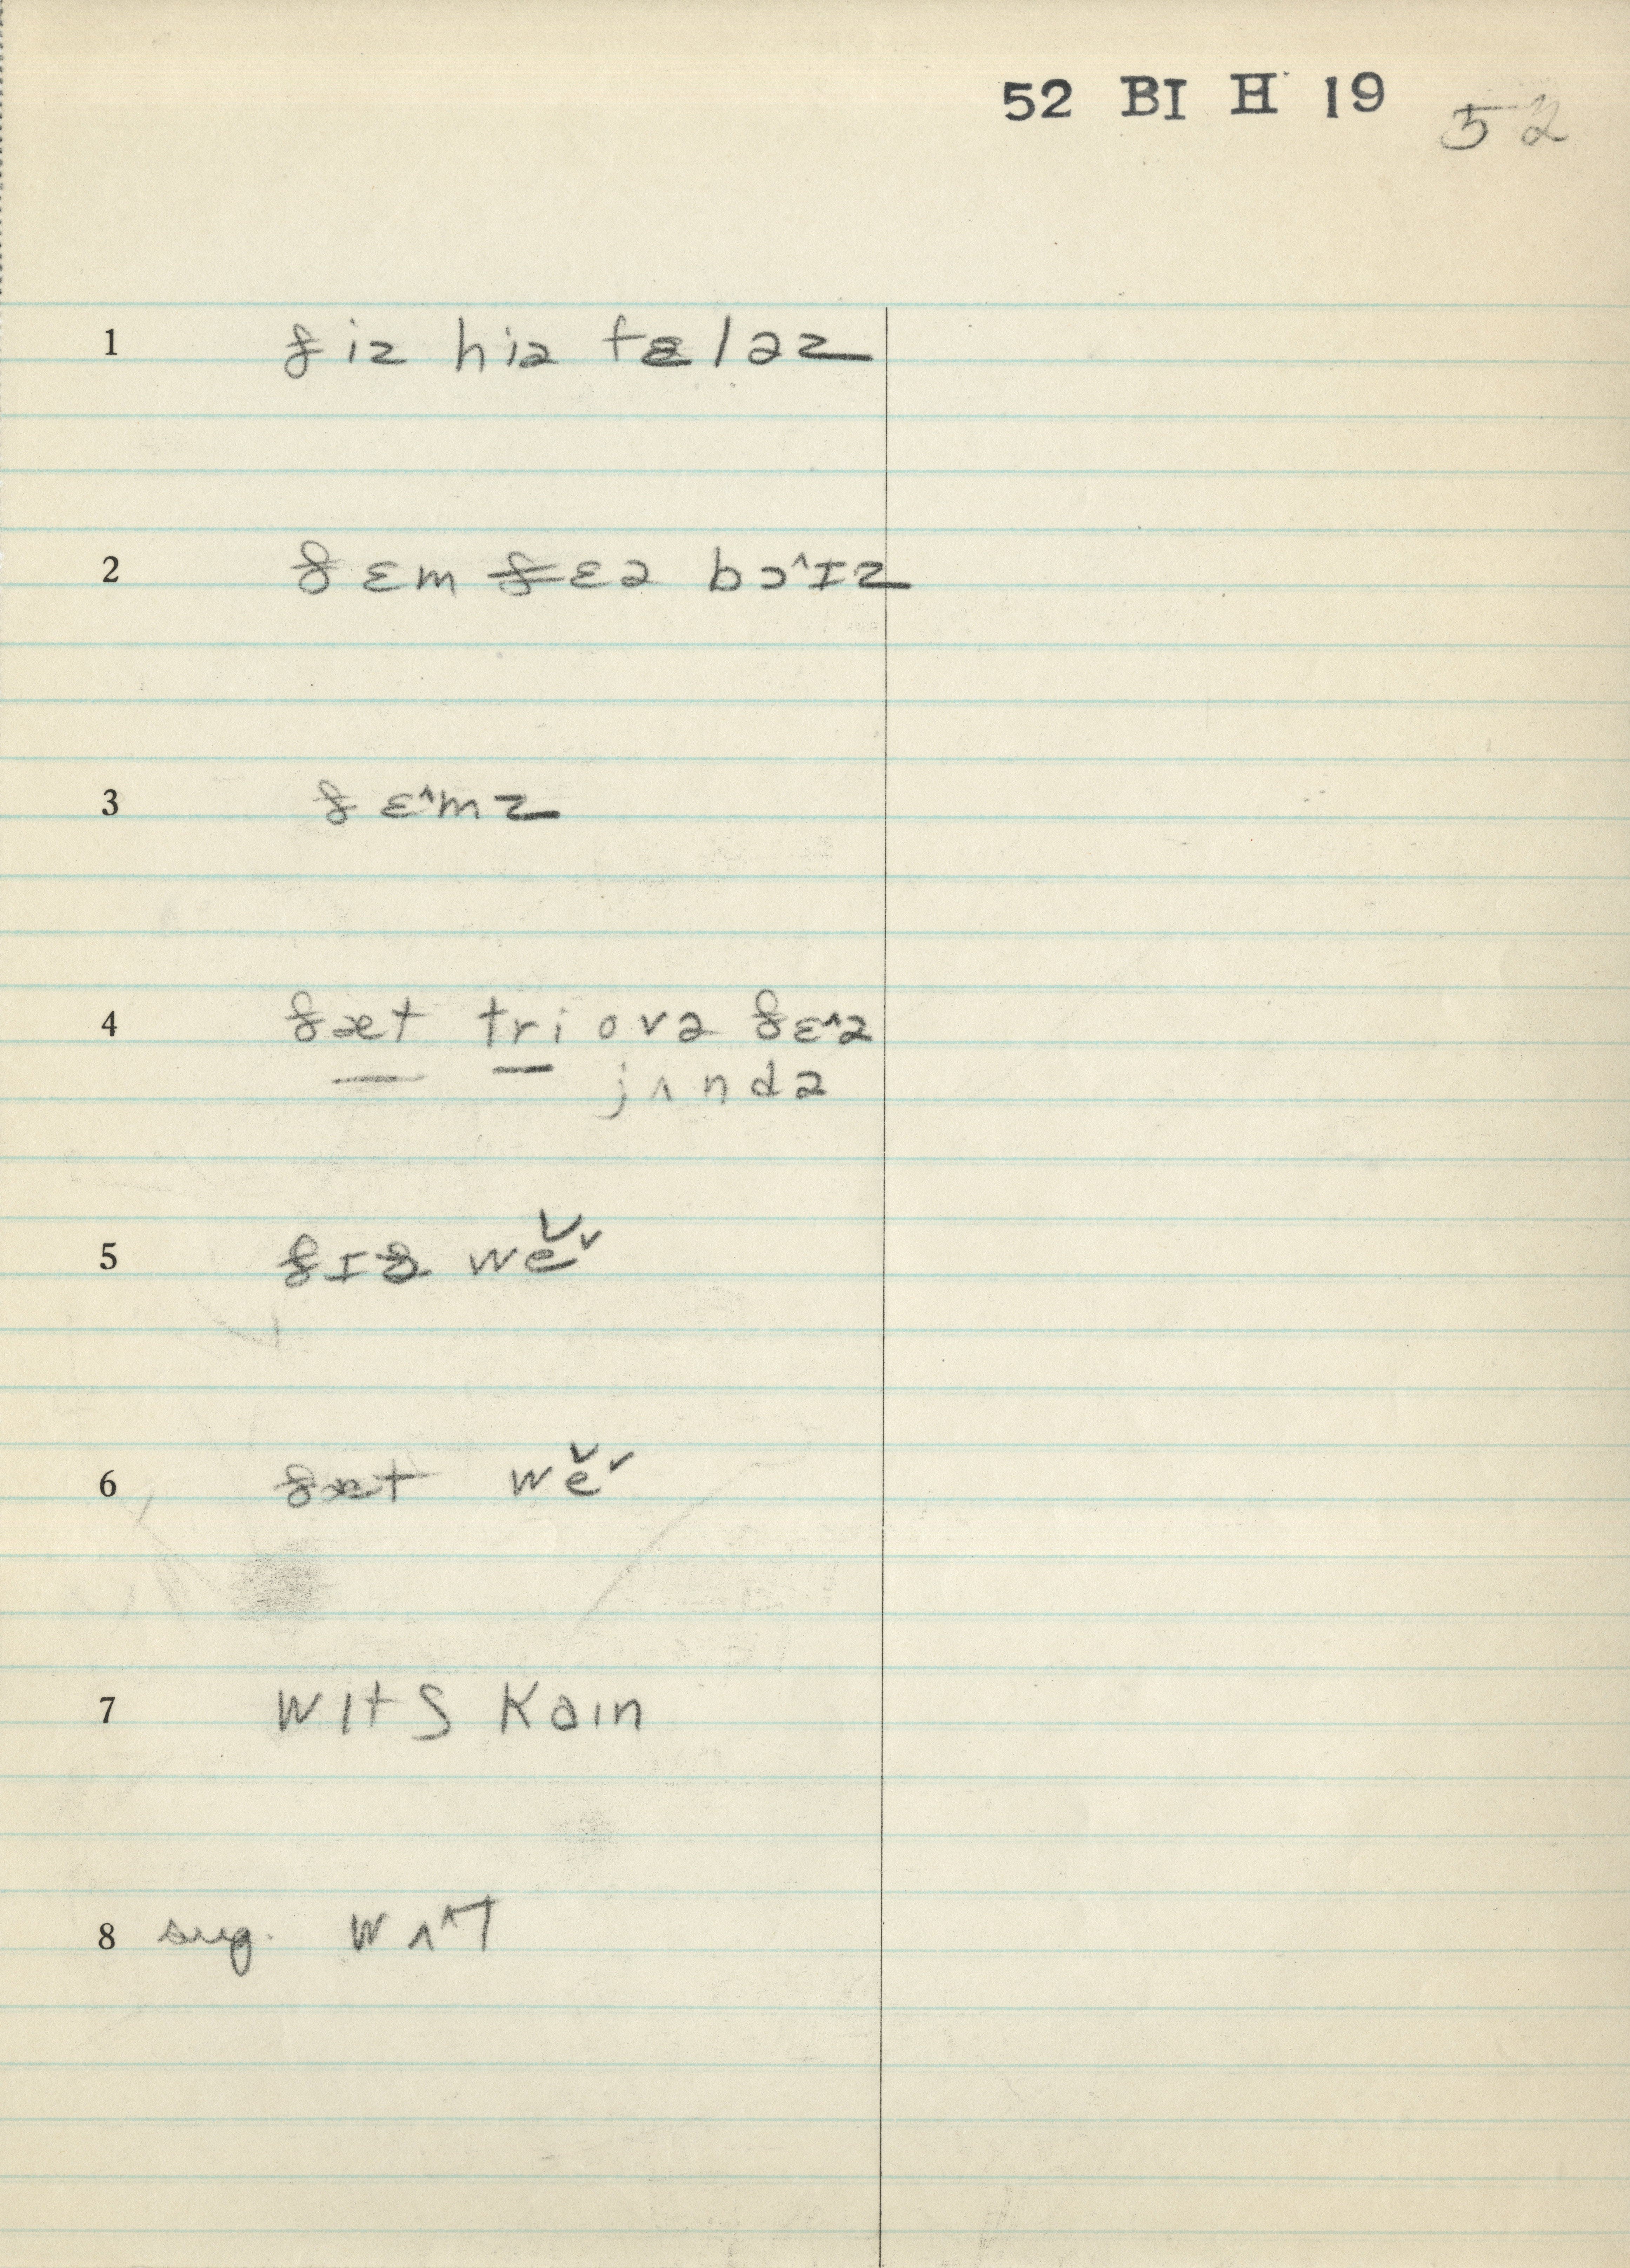 52 BI H 19 52
1 ðiz hiə fɛləz
2 ðɛm ðɛə bɔ^ɪz
3 ðɛ^mz
4 ðæt tri ovə ðɛ^ə
jʌndə
5 ðɪs we˅˅
6 ðæt we˅˅
7 wɪtʃ kaɪn
8 sug. wʌ^t